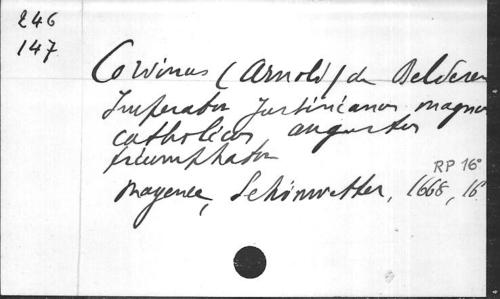 246
147
Corvinus (Arnold) de Belderen
Imperator Justinianus magnus
catholicus augustus
triumphator
RP 16°
Mayence, Schönwetter, 1668, 16°